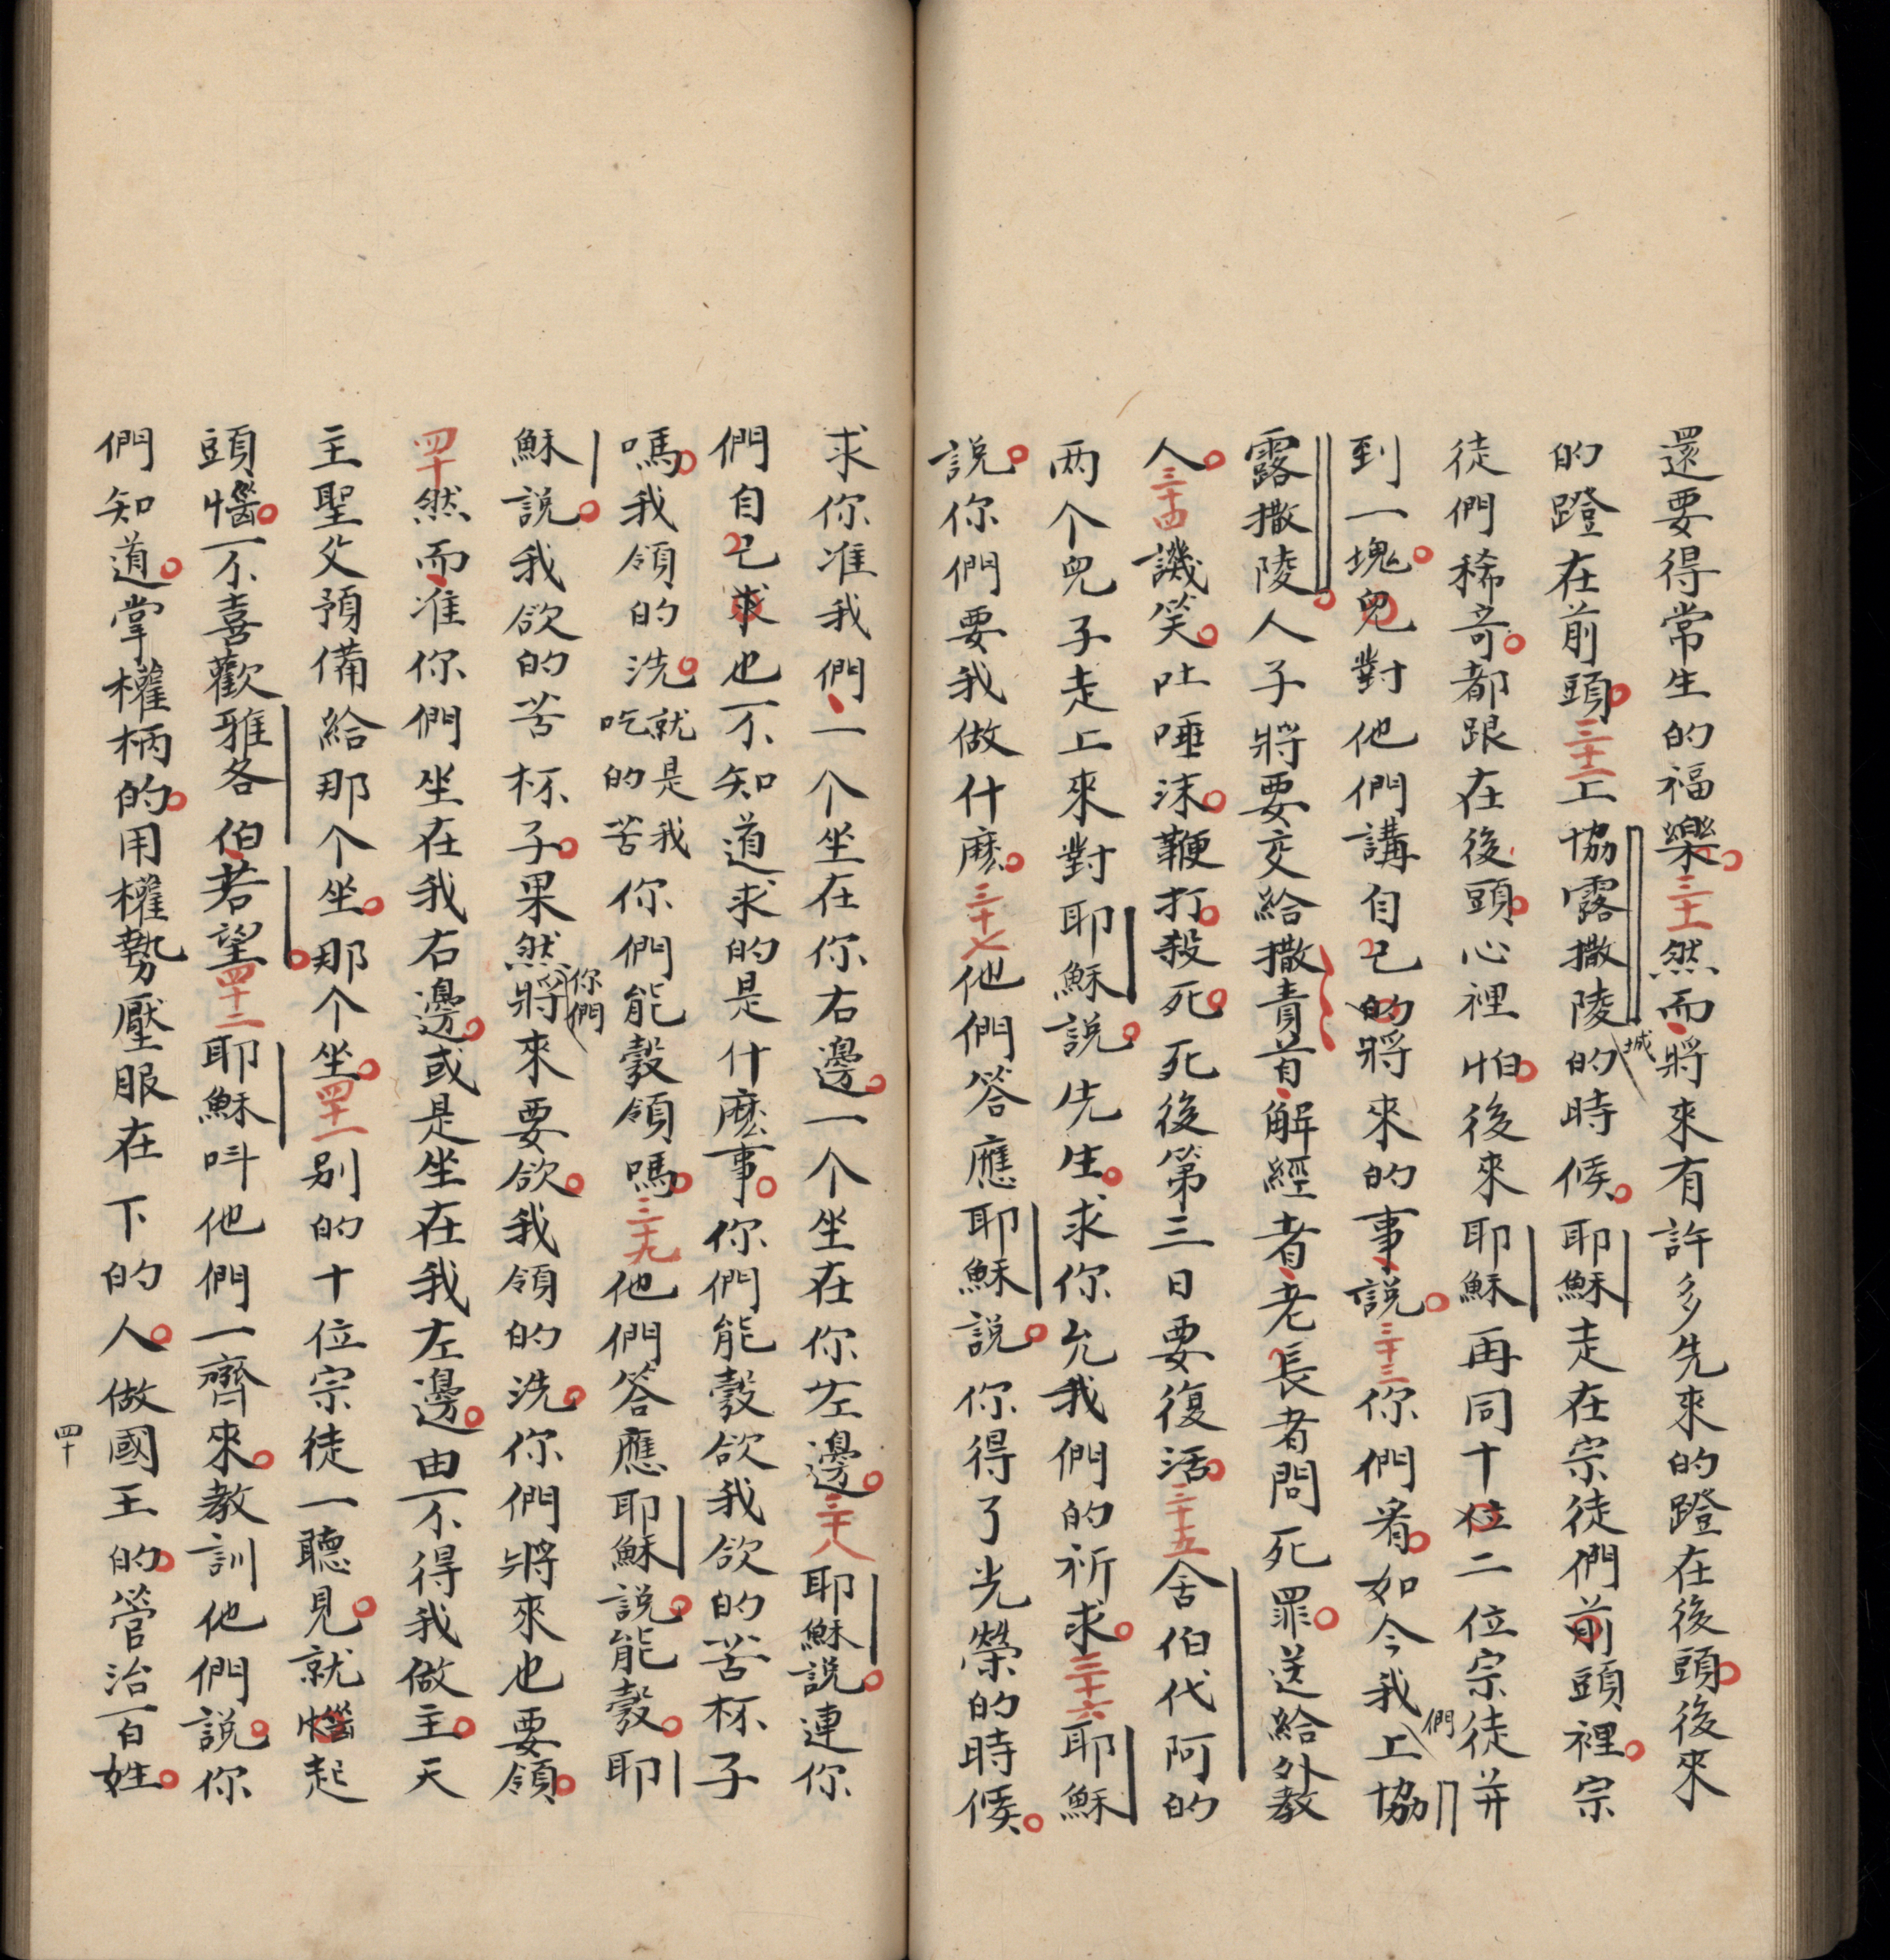 還要得常生的福樂。三十一然而、將來有許多先來的蹬在後頭。後來
的蹬在前頭。三十二上協露撒陵城的時候。耶穌走在宗徒們前頭裡。宗
徒們稀奇。都跟在後頭。心裡怕。後來耶穌再同十位二位宗徒并
到一塊。兒對他們講自己的將來的事、説。三十三你們看。如今我們上協
露撒陵。人子將要交給撒責首、解經者、老長者問死罪。送給外教
人。三十四譏笑。吐唾沫。鞭打。殺死。死後第三日要復活。三十五舍伯代阿的
两个兒子走上來對耶穌説。先生。求你允我們的祈求。三十六耶穌
説。你們要我做什麽。三十七他們答應耶穌説。你得了光榮的時候。
求你准我們、一个坐在你右邊。一个坐在你左邊。三十八耶穌説。連你
們自己求也不知道求的是什麽事。你們能彀欲我欲的苦杯子
嗎。我領的洗。就是我吃的苦你們能彀領嗎。三十九他們答應耶穌説。能彀。耶
穌説。我欲的苦杯子。果然你們將來要欲。我領的洗。你們將來也要領。
四十然而、准你們坐在我右邊。或是坐在我左邊。由不得我做主。天
主聖父預備給那个坐。那个坐。四十一别的十位宗徒一聽見。就惱起
頭惱。不喜歡雅各伯、若望。四十二耶穌呌他們一齊來。教訓他們説。你
們知道。掌權柄的。用權勢壓服在下的人。做國王的。管治百姓。
四十